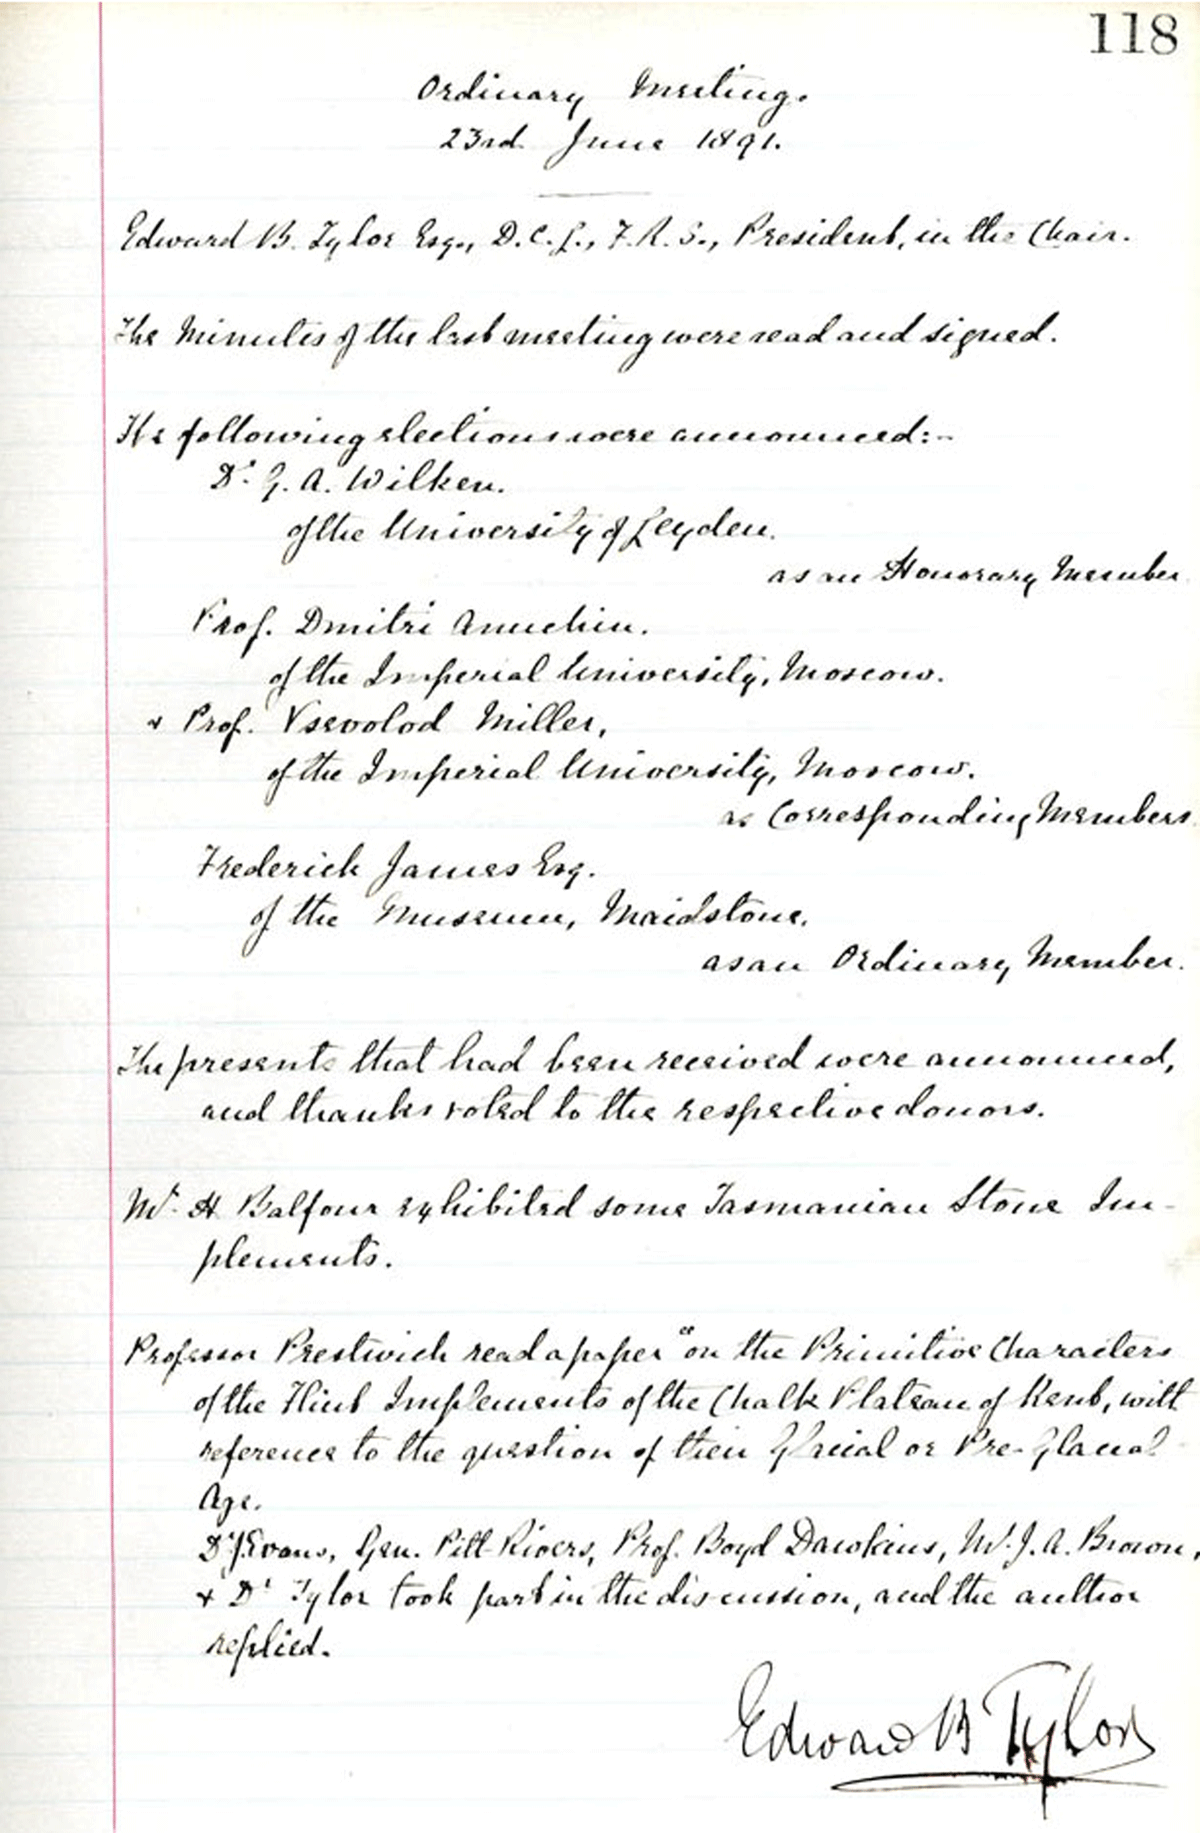 118
Ordinary Meeting.
23rd June 1891.
Edward B. Tylor Esq., D.C.L., F.R.S., President, in the Chair.
The Minutes of the last meeting were read and signed.
The following elections were announced:-
Dr. G. A. Wilken.
of the University of Leyden.
as an Honorary Member
Prof. Dmitri Anuchin.
of the Imperial University, Moscow.
& Prof. Vsevolod Miller,
of the Imperial University, Moscow.
as Corresponding Members.
Frederick James Esq.
of the Museum, Maidstone.
as an Ordinary Member.
The presents that had been received were announced,
and thanks voted to the respective donors.
Mr. H Balfour exhibited some Tasmanian Stone Im-
plements.
Professor Prestwich read a paper "on the Primitive Characters
of the Flint Implements of the Chalk Plateau of Kent, with
reference to the question of their Glacial or Pre-Glacial
Age.
Dr J Evans, Gen. Pitt-Rivers, Prof. Boyd Dawkins, Mr. J. A. Brown,
& Dr Tylor took part in the discussion, and the author
replied.
Edward B Tylor